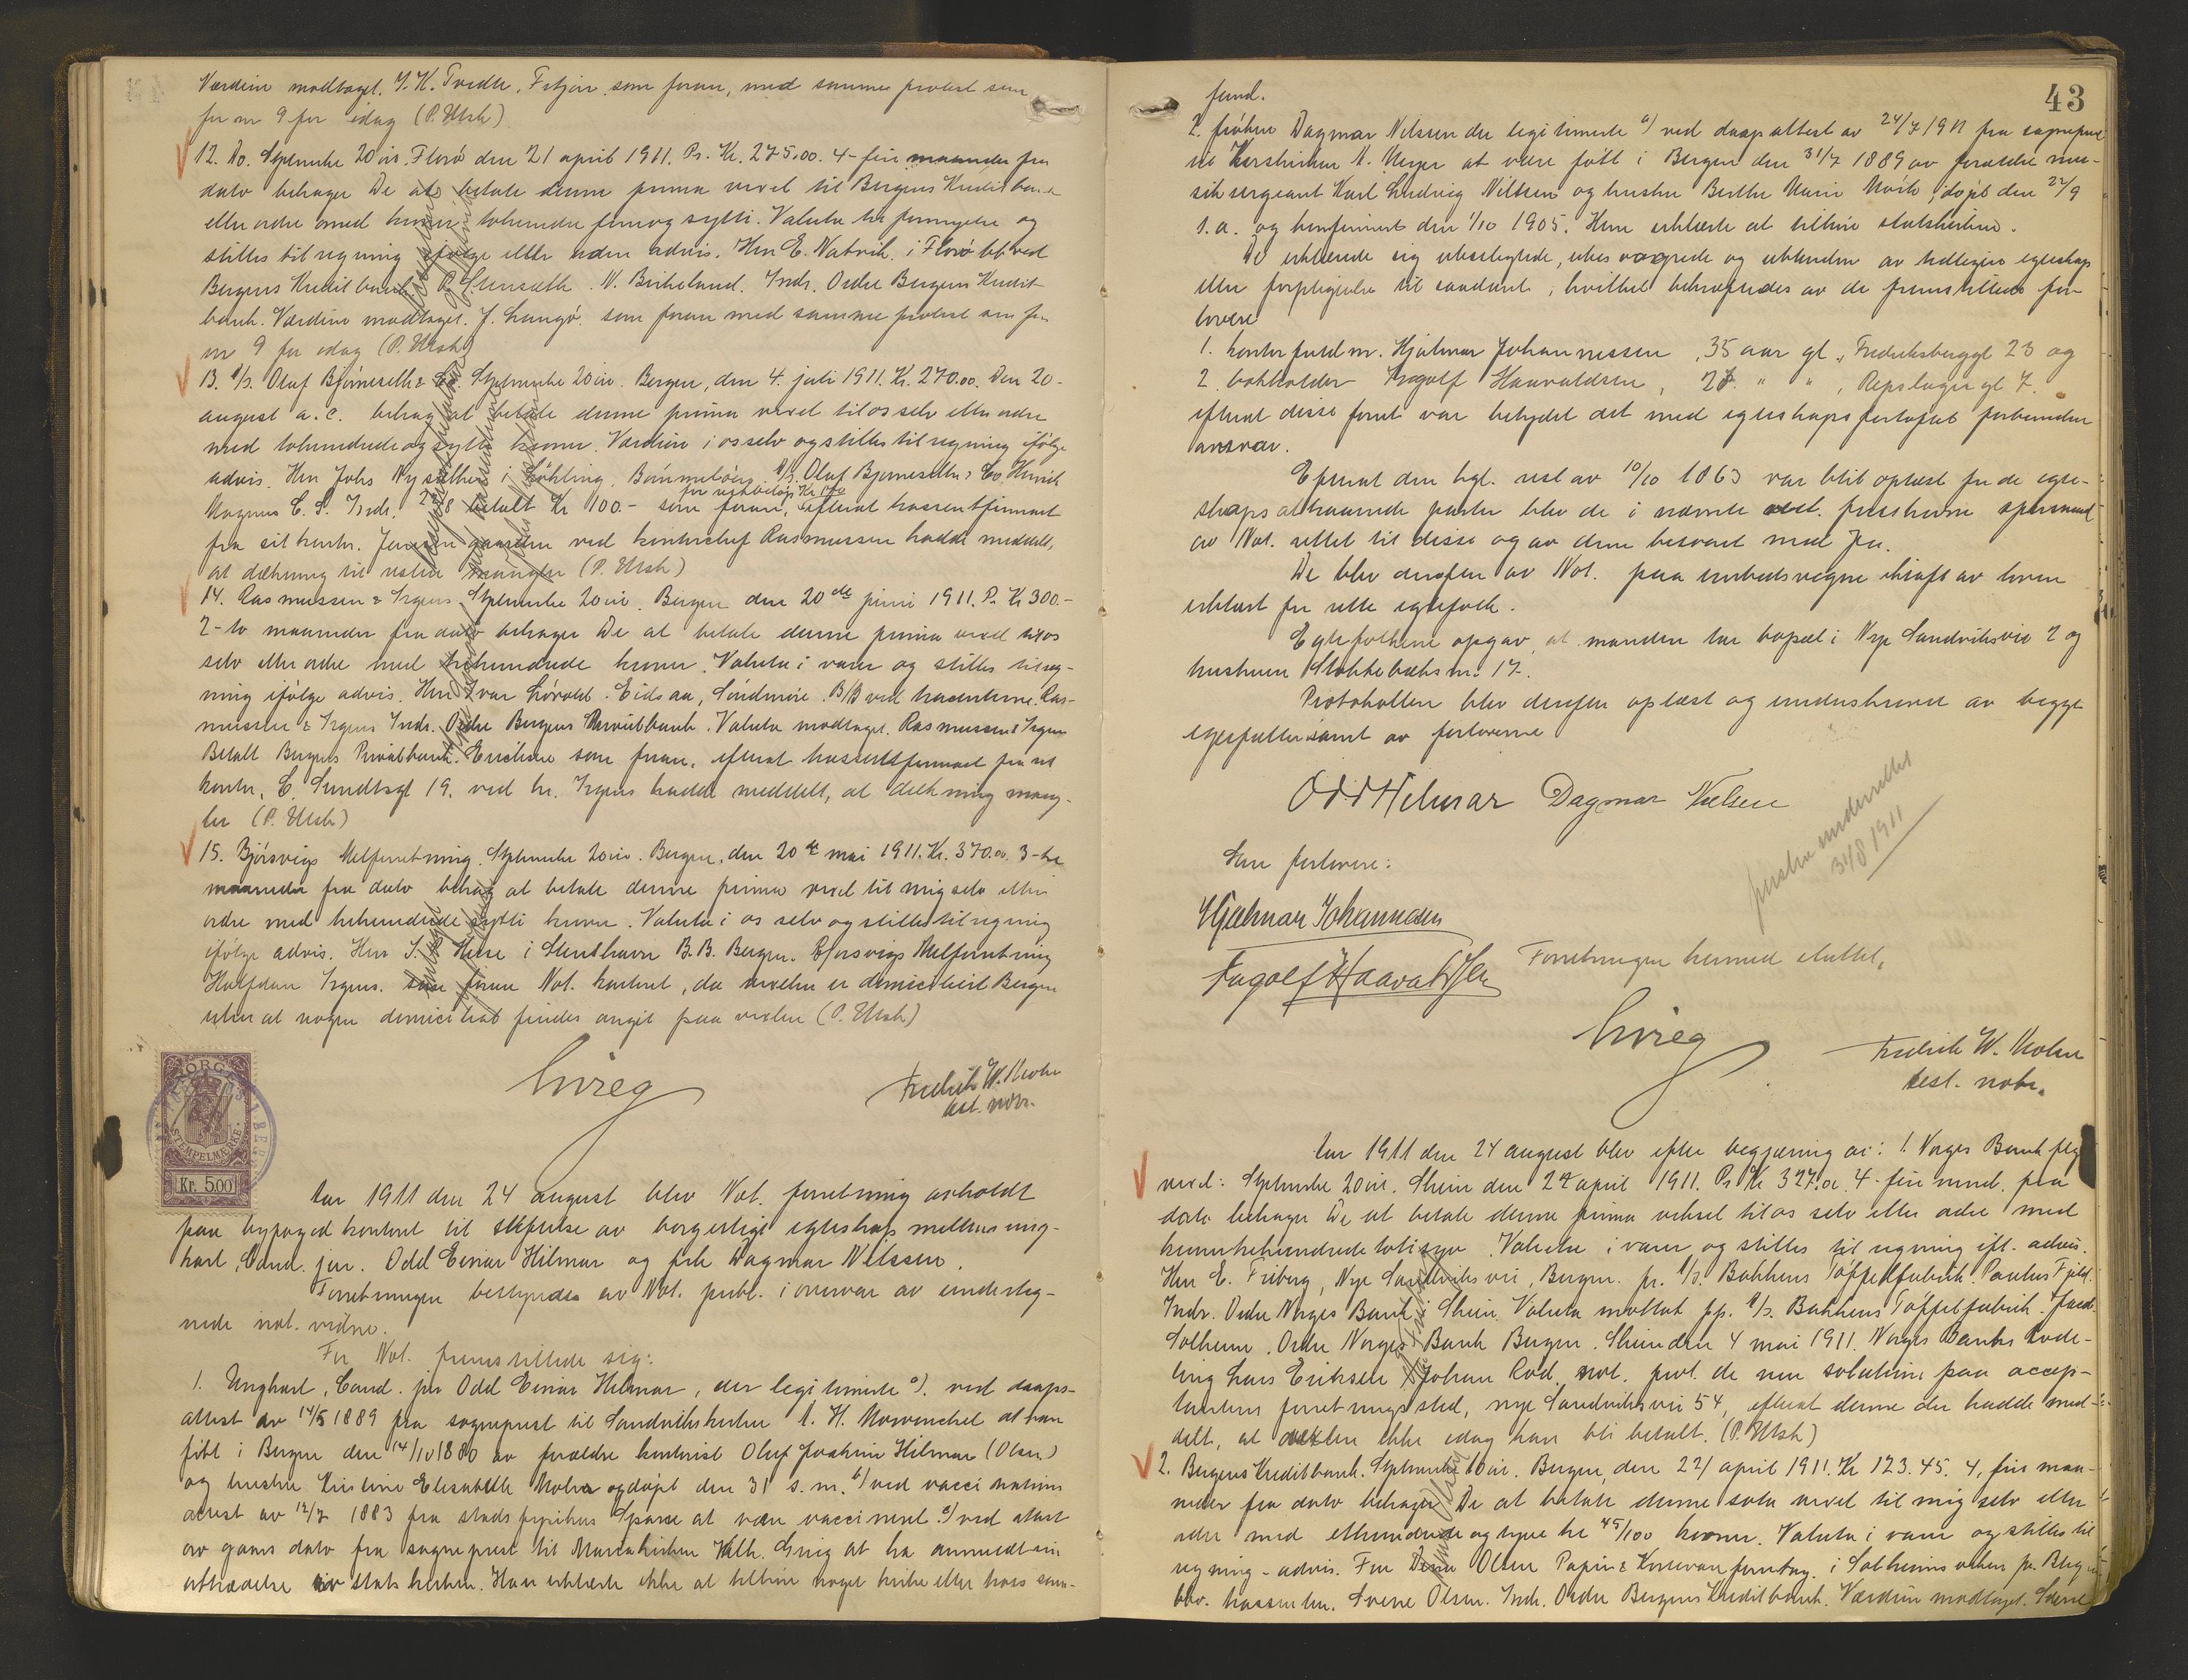 Værdien modtaget. J. K. Tvedte, Fitjar som foran, med samme protest som
for nr 9 for idag (P. Utsk)
12. Do. Stplmerke 20 øre. Florø den 21 april 1911. Pr. Kr. 275.00. 4 - fire maaneder fra
dato behager De at betale denne prima vexel til Bergens Kreditbank
eller ordre med kroner tohundre femogsytti. Valuta til fornyelse og
stilles til regning ifølge eller uden advis. Hrr E. Natvik i Florø bet. ved
Bergens Kreditbank. P. Stensæth. N. Birkeland. Indr. Ordre Bergens Kredit-
bank. Værdien modtaget. J. Langø. som foran med samme protest som for
nr 9 for idag (P. Utsk)
13. A/S. Oluf Bjørneseth & Co. Stplmerke 20 øre. Bergen, den 4. juli 1911. Kr. 270.00. Den 20-
august a. c. behag at betale denne prima vexel til os selv eller ordre
med tohundredeogsytti kroner. Værdien i os selv og stilles til regning ifølge
advis. Hrr Johs Nysæther i Løkling, Bømmeløen. A/S. Oluf Bjørneseth & Co. Henrik
Magnus C. S. Indr. 2/8 betalt Kr 100.- som foran, for restbeløp Kr 170 efterat kassent firmaet
fra sit kontor. Jernsen gaarden ved kontorchef Rasmussen hadde meddelt,
at dækning til resten mangler (P. Utsk)
14. Rasmussen & Irgens. Stplmerke 20 øre. Bergen den 20de juni 1911. Pr. Kr 300.-
2 - to maaneder fra dato behager De at betale denne prima vexel til os
selv eller ordre med trehundrede kroner. Valuta i varer og stilles til reg-
ning ifølge advis. Hrr Ivar Løvold. Eidsaa, Søndmøre. B/B ved trassenterne. Ras-
mussen & Irgens Indr. Ordre Bergens Privatbank. Valuta modtaget. Rasmussen & Irgens
Betalt Bergens Privatbank. Erichsen som foran, efterat trassentfirmaet fra sit
kontor, C. Sundtsgt 19. ved hr. Irgens hadde meddelt, at dækning mang-
ler (P. Utsk)
15. Bjørsvigs Melforretning. Stplmerke 20 øre. Bergen, den 20de mai 1911. Kr. 370.00. 3 - tre
maaneder fra dato behag at betale denne prima vexel til mig selv eller
ordre med trehundrede sytti kroner. Valuta i os selv og stilles til regning
ifølge advis. Hrr S. Helse i Stenthavn B. B. Bergen. Bjørsvigs Melforretning
Halfdan Irgens. som foran Not. kontoret, da vexelen er domicileret Bergen
uten at nogen domiciliat findes angit paa vexlen (P. Utsk)
Fredrik W. Mohn
ast. notr.
NORGE
STEMPELMERKE
Kr. 5.00
Aar 1911 den 24 august blev Not. forretning avholdt
paa byfoged kontoret til stiftelse av borgerligt egteskap mellem ung-
karl, Cand. jur. Odd Einar Hilmar og frk Dagmar Nilssen.
Forretningen bestyredes av Not. publ. i overvær av undertegn-
nede not. vidne.
For Not. fremstillede sig:
1. Ungkarl, Cand. jur Odd Einar Hilmar, der legitimerte a). ved daaps-
attest av 14/5 1889 fra sogneprest til Sandvikskirken A. H. Mowinckel at han
født i Bergen den 14/10 1880 av forældre kontorist Oluf Joakim Hilmar (Olsen)
og hustru Kirstine Elisabeth Mohr og døpt den 31 s. m. b) ved vaccinations
attest av 12/7 1883 fra stadsfysikus Sparre at være vaccineret c) ved attest
av gaars dato fra sogneprest til Mariakirken Vilh. Grieg at ha anmeldt sin
utrædelse av statskirken. Han erklærte ikke at tilhøre noget kirke eller tros sam-
43
fund.
2. frøken Dagmar Nilssen der legitimerte a) ved daapsattest av 24/7 1911 fra sogneprest
til Korskirken N. Meyer at være født i Bergen den 31/7 1889 av forældre mu-
siksergeant Karl Ludvig Nilssen og hustru Berthe Marie Mörk, døpt den 22/9
s. a. og konfirmeret den 1/10 1905. Hun erklærte at tilhøre statskirken.
De erklærede sig ubeslegtede, ubesvogrede og ubundne av tidligere egteskap
eller forpligtelse til saadant, hvilket bekræftedes av de fremstillede for-
lovere
1. kontorfuldm. Hjalmar Johannessen, 35 aar gl., Fredriksberggt 23 og
2. bokholder Ingolf Haavaldsen, 27. " ", Repslagergt 7.
efterat disse foret var betydet det med egteskaps forlovet forbundne
ansvar.
Efterat den kgl. rest av 10/10 1863 var blit oplæst for de egte-
skapsattraaende parter blev de i nævnte rest. foreskrevne spørsmaal
av Not. rettet til disse og av dem besvaret med Ja.
De blev derefter av Not. paa embedsvegne i kraft av loven
erklært for rette egtefolk.
Egtefolkene opgav, at manden tar bopæl i Nye Sandviksvei 2 og
hustruen Stokkebæksm. 17.
Protokollen blev derefter oplæst og underskrevet av begge
egtefæller samt av forloverne
Odd Hilmar Dagmar Nilsen
Som forlovere:
Hjalmar Johannesen
Ingolf Haavaldsen
Forretningen hermed sluttet.
presten underrettet
24/8 1911
Fredrik W. Mohn
test. notr.
Aar 1911 den 24 august blev efter begjæring av: 1. Norges Bank flg
vexel: Stplmerke 20 øre. Skien den 22 april 1911. Pr Kr 327.00. 4 - fire mnd. fra
dato behager De at betale denne prima veksel til os selv eller ordre med
kroner trehundrede totisyv. Valuta i varer og stilles til regning ifl. advis.
Hrr E. Friberg, Nye Sandviksvei, Bergen. pr. A/S. Bakkens Tøffelfabrik. Paulus Fjeld.
Indr. Ordre Norges Bank i Skien. Valuta mottat pp. A/S. Bakkens Tøffelfabrik.
Solheim. Ordre Norges Bank Bergen. Skien den 4 mai 1911. Norges Banks avde-
ling Lars Eriksen. Johan Rød. not. prot. de non solutione paa accep-
tantens forretningssted, nye Sandviksvei 54, efterat denne der hadde med-
delt, at vexlen ikke idag kan bli betalt. (P. Utsk)
2. Bergens Kreditbank. Stplmerke 10 øre. Bergen, den 22/ april 1911. Kr 123.45. 4, fire maa-
neder fra dato behager De at betale denne sola vexel til mig selv eller
ordre med ethundrede og tyve tre 45/100 kroner. Valuta i varer og stilles til
regning - advis. Fru Olsen Papir & Kortevareforretning. i Solheimsviken pr. Bergen
blv. trassenten. Sverre Olsen. Indr. Ordre Bergens Kreditbank. Værdien modtaget.